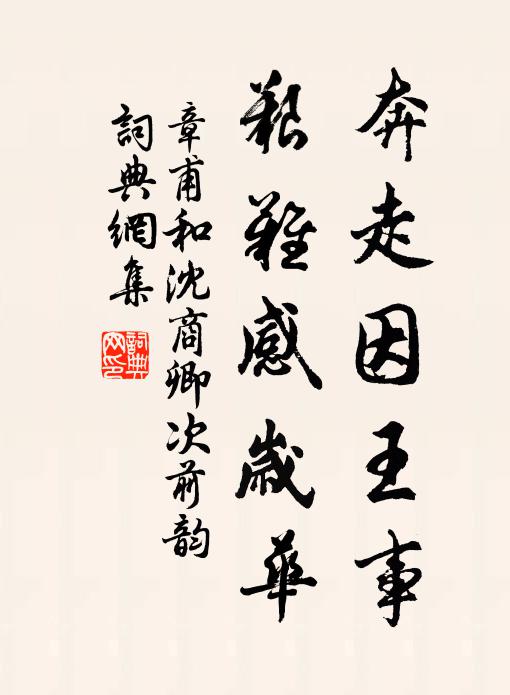 奔走因王事
艱難感歲華
章甫和沈商卿次前韵
詞典網集
詞典網印